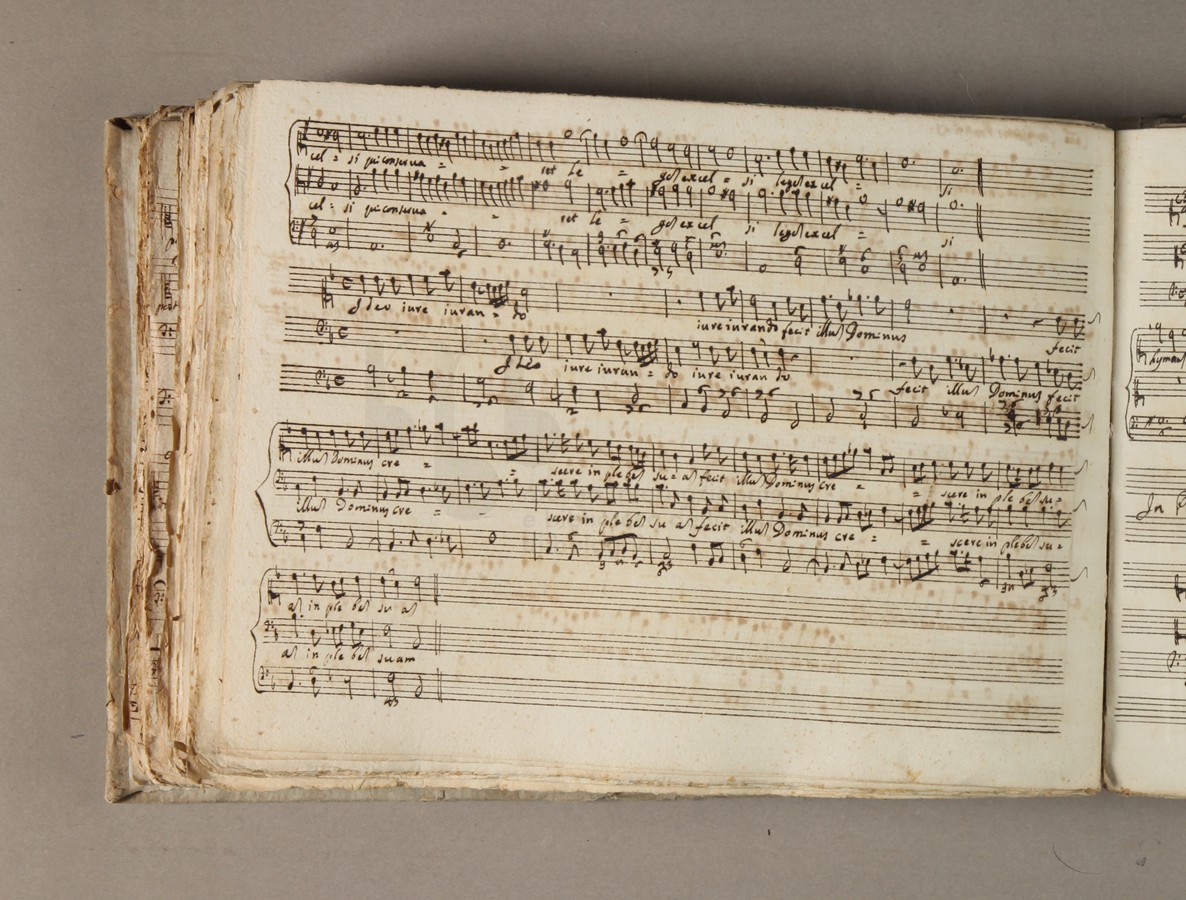 cel = si qui conserva = = vet Le = ges excel = si leges excel = si
cel = si qui conserva = = vet Le = ges excel si leges excel = si
Ideo iure iuran = do iureiurando fecit illus Dominus fecit
Ideo iure iuran = do iure iuran do fecit illus Dominus fecit
illus Dominus cre = = scere in ple bes su = as fecit illus Dominus cre = = scere in ple bes su =
illus Dominus cre = = scere in ple bes su as fecit illus Dominus cre = = scere in plebes su =
as in ple bes su as
as in ple bes suam
hymnus
In